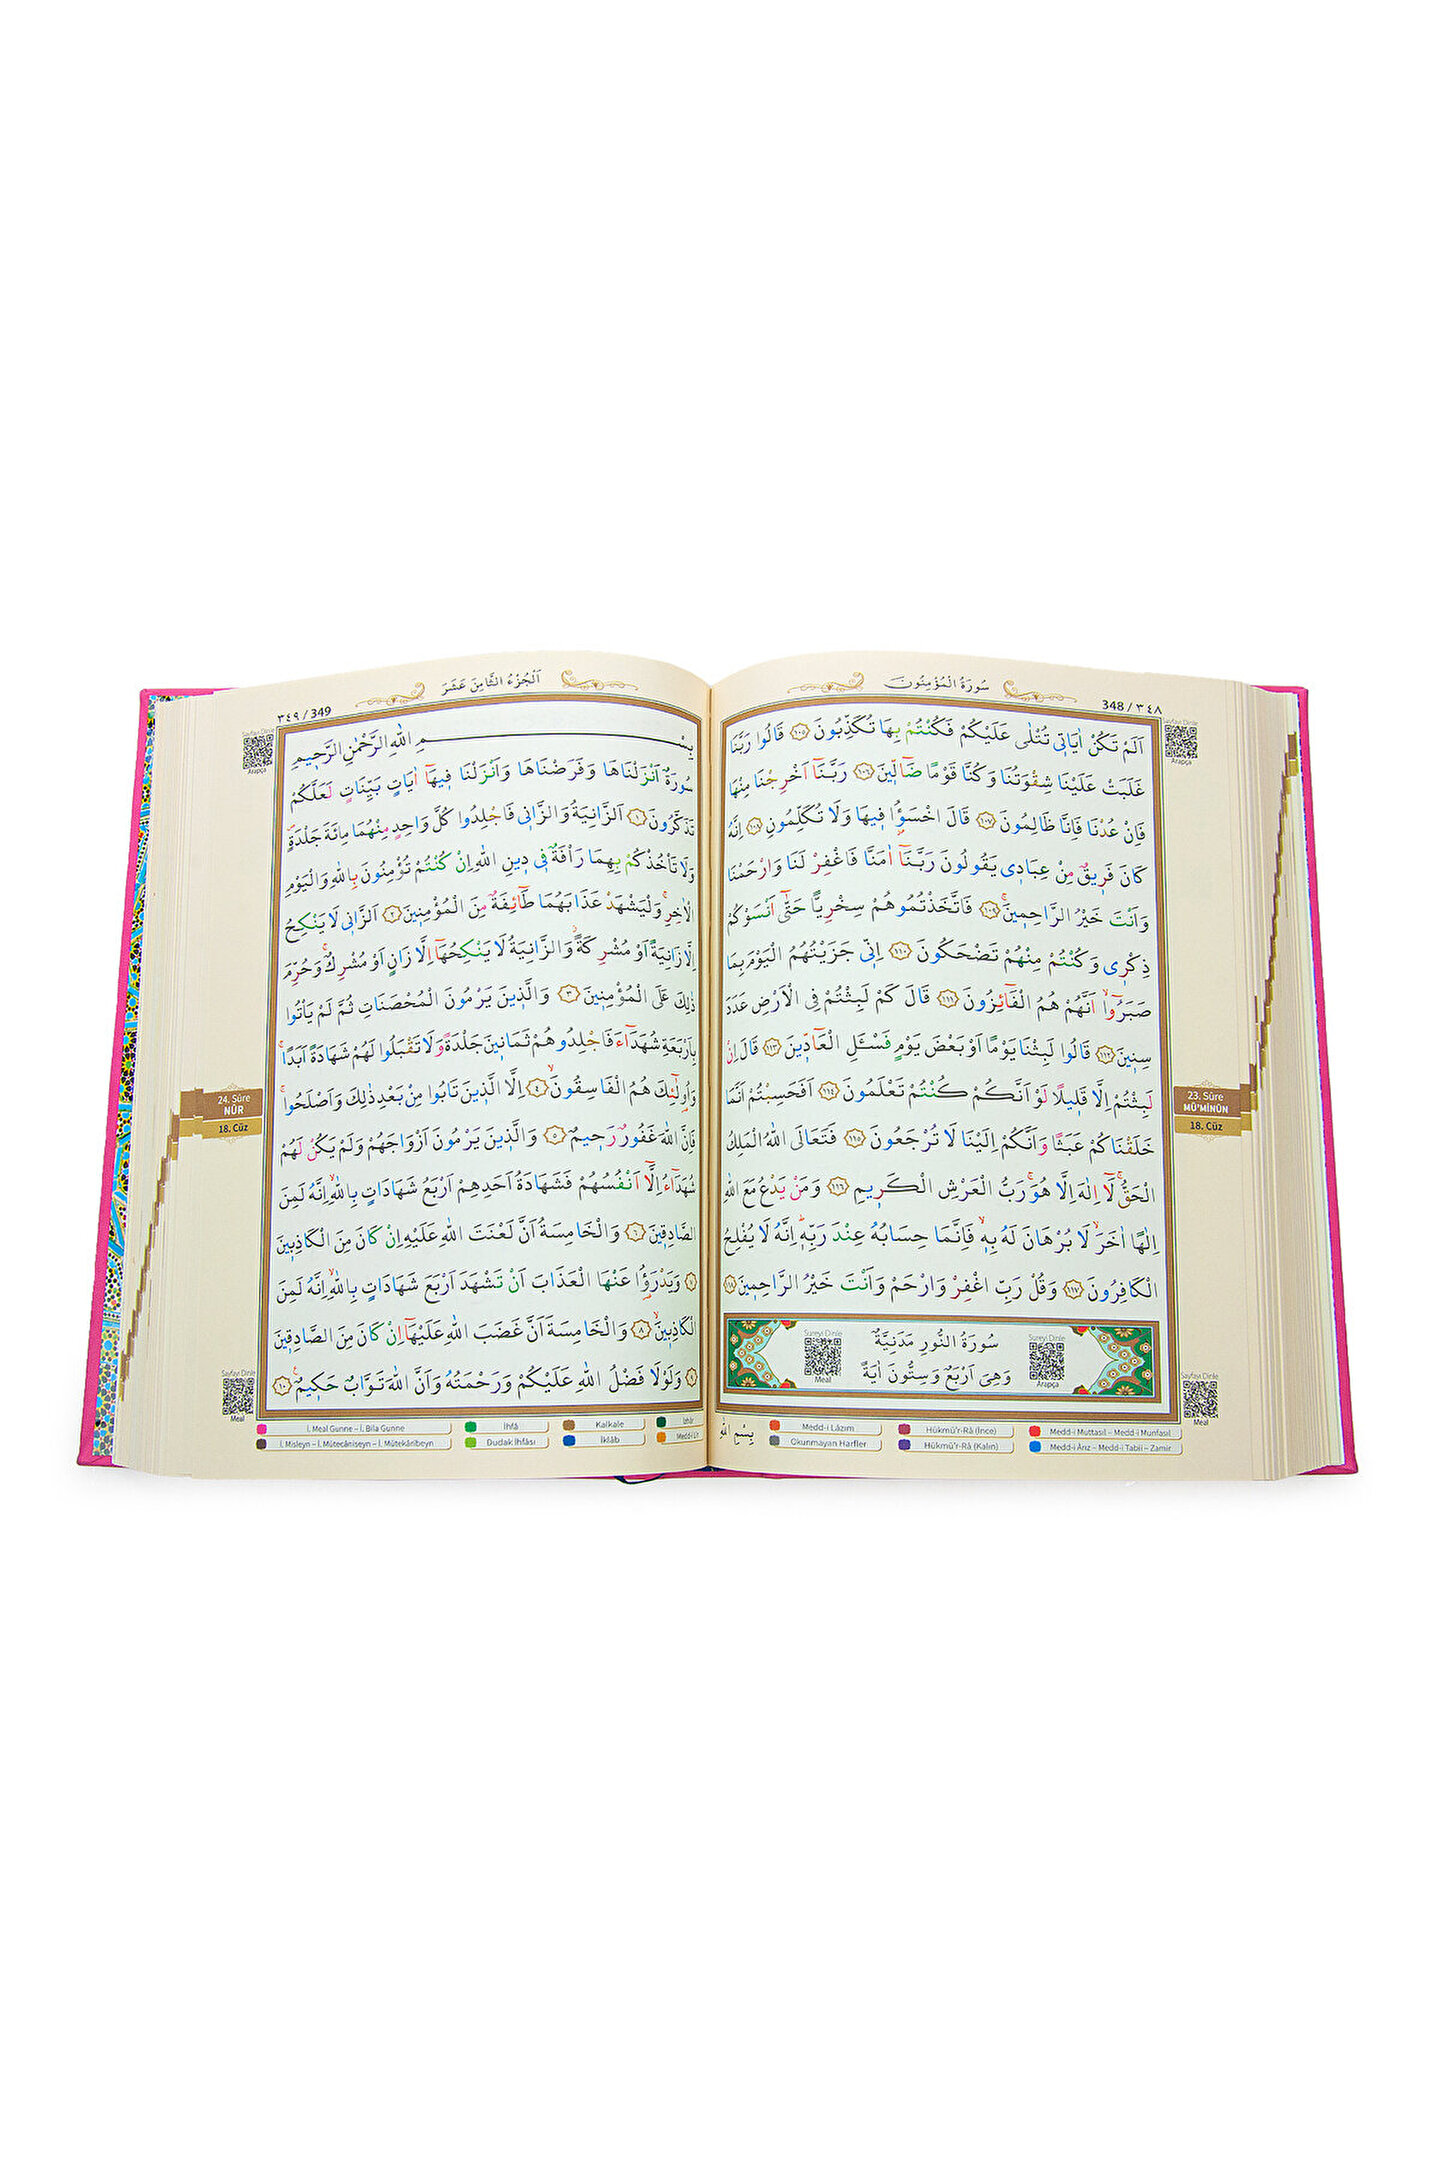 سُورَةُ الْمُؤْمِنُونَ
348 / ٣٤٨
Sayfayı Dinle
Arapça
اَلَمْ تَكُنْ اٰيَاتٖي تُتْلٰى عَلَيْكُمْ فَكُنْتُمْ بِهَا تُكَذِّبُونَ ١٠٥ قَالُوا رَبَّنَا
غَلَبَتْ عَلَيْنَا شِقْوَتُنَا وَكُنَّا قَوْمًا ضَٓالّٖينَ ١٠٦ رَبَّنَٓا اَخْرِجْنَا مِنْهَا
فَاِنْ عُدْنَا فَاِنَّا ظَالِمُونَ ١٠٧ قَالَ اخْسَؤُ۫ا فٖيهَا وَلَا تُكَلِّمُونِ ١٠٨ اِنَّهُ
كَانَ فَرٖيقٌ مِنْ عِبَادٖي يَقُولُونَ رَبَّنَٓا اٰمَنَّا فَاغْفِرْ لَنَا وَارْحَمْنَا
وَاَنْتَ خَيْرُ الرَّاحِمٖينَۚ ١٠٩ فَاتَّخَذْتُمُوهُمْ سِخْرِيًّا حَتّٰٓى اَنْسَوْكُمْ
ذِكْرٖي وَكُنْتُمْ مِنْهُمْ تَضْحَكُونَ ١١٠ اِنّٖي جَزَيْتُهُمُ الْيَوْمَ بِمَا
صَبَرُٓواۙ اَنَّهُمْ هُمُ الْفَٓائِزُونَ ١١١ قَالَ كَمْ لَبِثْتُمْ فِي الْاَرْضِ عَدَدَ
سِنٖينَ ١١٢ قَالُوا لَبِثْنَا يَوْمًا اَوْ بَعْضَ يَوْمٍ فَسْـَٔلِ الْعَٓادّٖينَ ١١٣ قَالَ اِنْ
لَبِثْتُمْ اِلَّا قَلٖيلًا لَوْ اَنَّكُمْ كُنْتُمْ تَعْلَمُونَ ١١٤ اَفَحَسِبْتُمْ اَنَّمَا
خَلَقْنَاكُمْ عَبَثًا وَاَنَّكُمْ اِلَيْنَا لَا تُرْجَعُونَ ١١٥ فَتَعَالَى اللّٰهُ الْمَلِكُ
الْحَقُّۚ لَٓا اِلٰهَ اِلَّا هُوَۚ رَبُّ الْعَرْشِ الْكَرٖيمِ ١١٦ وَمَنْ يَدْعُ مَعَ اللّٰهِ
اِلٰهًا اٰخَرَۙ لَا بُرْهَانَ لَهُ بِهٖۙ فَاِنَّمَا حِسَابُهُ عِنْدَ رَبِّهٖۜ اِنَّهُ لَا يُفْلِحُ
الْكَافِرُونَ ١١٧ وَقُلْ رَبِّ اغْفِرْ وَارْحَمْ وَاَنْتَ خَيْرُ الرَّاحِمٖينَ ١١٨
سُورَةُ النُّورِ مَدَنِيَّةٌ
وَهِيَ اَرْبَعٌ وَسِتُّونَ اٰيَةً
Sureyi Dinle
Arapça
Sureyi Dinle
Meal
23. Sûre
MÜ'MİNÛN
18. Cüz
Sayfayı Dinle
Meal
بِسْمِ اللّٰهِ
Medd-i Lâzım
Hükmü'r-Râ (İnce)
Medd-i Muttasıl – Medd-i Munfasıl
Okunmayan Harfler
Hükmü'r-Râ (Kalın)
Medd-i Ârız – Medd-i Tabiî – Zamir
اَلْجُزْءُ الثَّامِنَ عَشَرَ
٣٤٩ / 349
Sayfayı Dinle
Arapça
بِسْمِ اللّٰهِ الرَّحْمٰنِ الرَّحٖيمِ
سُورَةٌ اَنْزَلْنَاهَا وَفَرَضْنَاهَا وَاَنْزَلْنَا فٖيهَٓا اٰيَاتٍ بَيِّنَاتٍ لَعَلَّكُمْ
تَذَكَّرُونَ ١ اَلزَّانِيَةُ وَالزَّانٖي فَاجْلِدُوا كُلَّ وَاحِدٍ مِنْهُمَا مِائَةَ جَلْدَةٍۖ
وَلَا تَأْخُذْكُمْ بِهِمَا رَأْفَةٌ فٖي دٖينِ اللّٰهِ اِنْ كُنْتُمْ تُؤْمِنُونَ بِاللّٰهِ وَالْيَوْمِ
الْاٰخِرِۚ وَلْيَشْهَدْ عَذَابَهُمَا طَٓائِفَةٌ مِنَ الْمُؤْمِنٖينَ ٢ اَلزَّانٖي لَا يَنْكِحُ
اِلَّا زَانِيَةً اَوْ مُشْرِكَةًۘ وَالزَّانِيَةُ لَا يَنْكِحُهَٓا اِلَّا زَانٍ اَوْ مُشْرِكٌۚ وَحُرِّمَ
ذٰلِكَ عَلَى الْمُؤْمِنٖينَ ٣ وَالَّذٖينَ يَرْمُونَ الْمُحْصَنَاتِ ثُمَّ لَمْ يَأْتُوا
بِاَرْبَعَةِ شُهَدَٓاءَ فَاجْلِدُوهُمْ ثَمَانٖينَ جَلْدَةً وَلَا تَقْبَلُوا لَهُمْ شَهَادَةً اَبَدًاۚ
وَاُو۬لٰٓئِكَ هُمُ الْفَاسِقُونَۙ ٤ اِلَّا الَّذٖينَ تَابُوا مِنْ بَعْدِ ذٰلِكَ وَاَصْلَحُواۚ
فَاِنَّ اللّٰهَ غَفُورٌ رَحٖيمٌ ٥ وَالَّذٖينَ يَرْمُونَ اَزْوَاجَهُمْ وَلَمْ يَكُنْ لَهُمْ
شُهَدَٓاءُ اِلَّٓا اَنْفُسُهُمْ فَشَهَادَةُ اَحَدِهِمْ اَرْبَعُ شَهَادَاتٍ بِاللّٰهِۙ اِنَّهُ لَمِنَ
الصَّادِقٖينَ ٦ وَالْخَامِسَةُ اَنَّ لَعْنَتَ اللّٰهِ عَلَيْهِ اِنْ كَانَ مِنَ الْكَاذِبٖينَ
٧ وَيَدْرَؤُ۬ا عَنْهَا الْعَذَابَ اَنْ تَشْهَدَ اَرْبَعَ شَهَادَاتٍ بِاللّٰهِۙ اِنَّهُ لَمِنَ
الْكَاذِبٖينَۙ ٨ وَالْخَامِسَةَ اَنَّ غَضَبَ اللّٰهِ عَلَيْهَٓا اِنْ كَانَ مِنَ الصَّادِقٖينَ
٩ وَلَوْلَا فَضْلُ اللّٰهِ عَلَيْكُمْ وَرَحْمَتُهُ وَاَنَّ اللّٰهَ تَوَّابٌ حَكٖيمٌ ١٠
24. Sûre
NÛR
18. Cüz
Sayfayı Dinle
Meal
İ. Meal Gunne – İ. Bila Gunne
İhfâ
Kalkale
İzhâr
İ. Misleyn – İ. Mütecâniseyn – İ. Mütekâribeyn
Dudak İhfâsı
İklâb
Medd-i Lîn